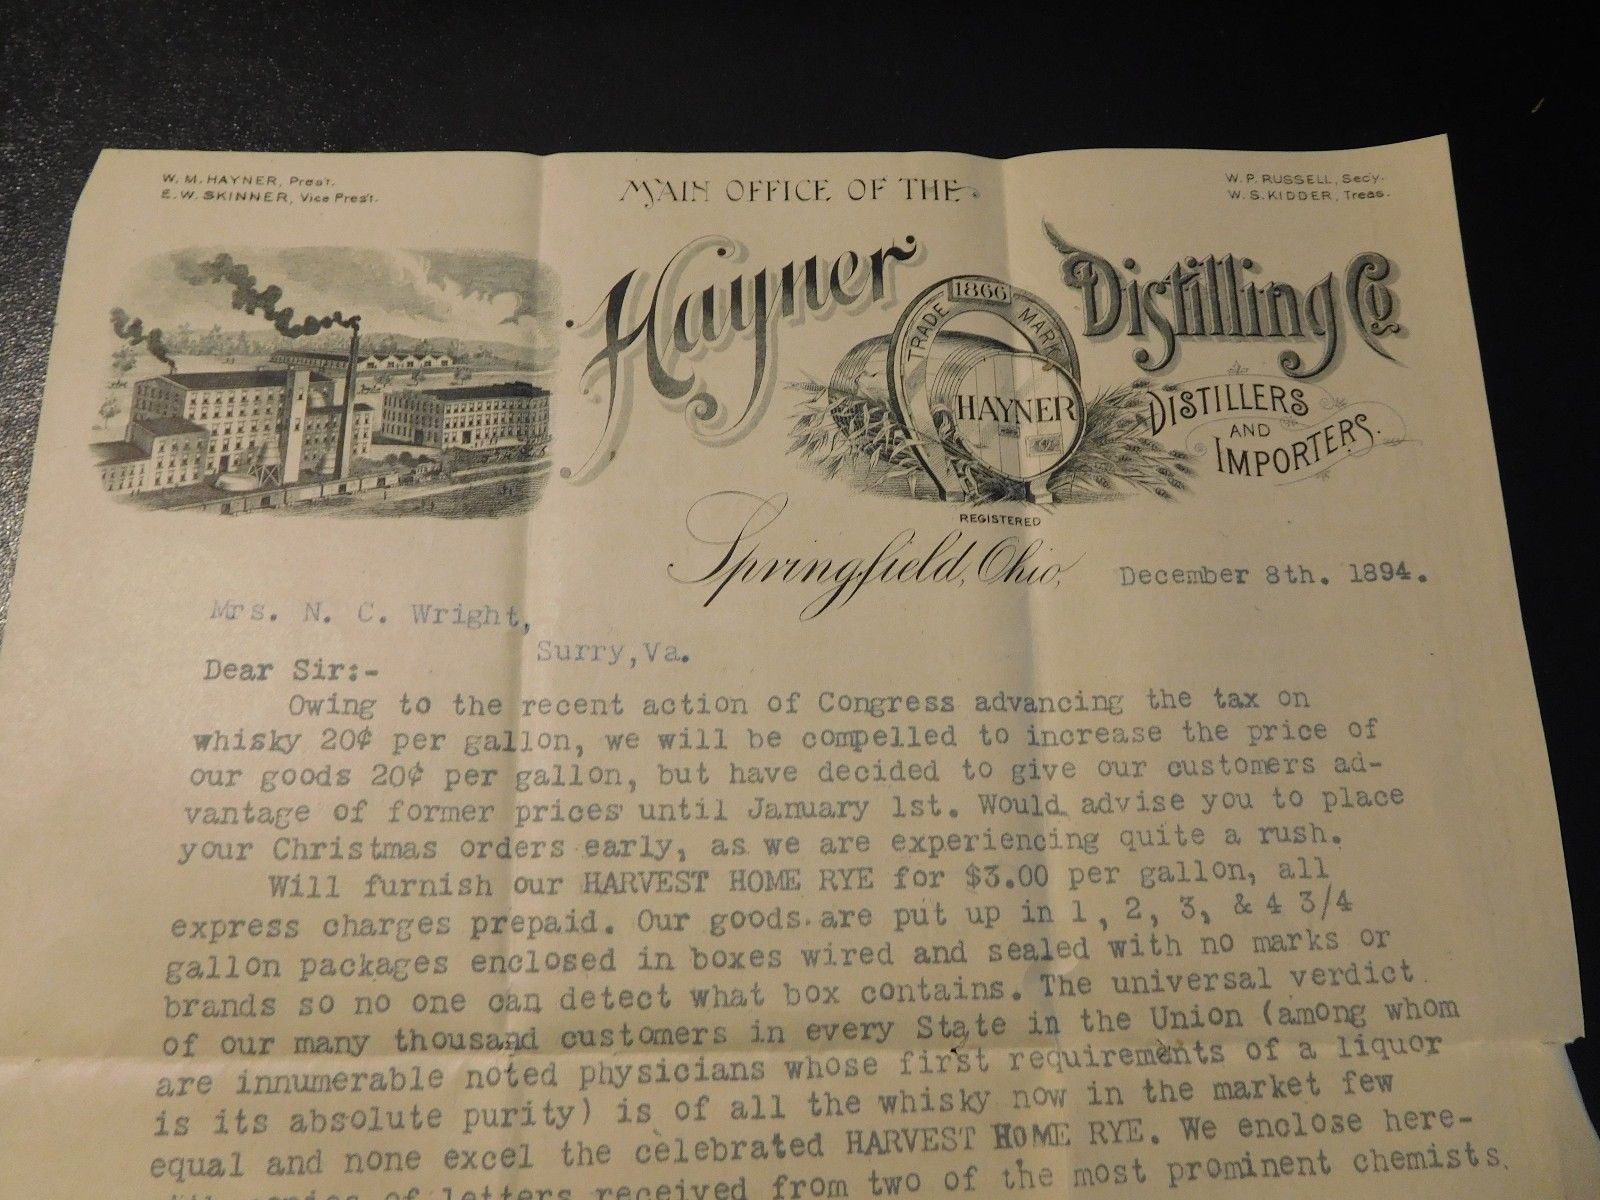 W. M. HAYNER, Pres't.
E. W. SKINNER, Vice Pres't.
MAIN OFFICE OF THE
W. P. RUSSELL, Sec'y.
W. S. KIDDER, Treas.
Hayner Distilling Co
TRADE 1866 MARK
HAYNER
DISTILLERS
AND
IMPORTERS.
REGISTERED
Springfield, Ohio, December 8th. 1894.
Mrs. N. C. Wright,
Surry, Va.
Dear Sir:-
Owing to the recent action of Congress advancing the tax on
whisky 20¢ per gallon, we will be compelled to increase the price of
our goods 20¢ per gallon, but have decided to give our customers ad-
vantage of former prices until January 1st. Would advise you to place
your Christmas orders early, as we are experiencing quite a rush.
Will furnish our HARVEST HOME RYE for $3.00 per gallon, all
express charges prepaid. Our goods are put up in 1, 2, 3, & 4 3/4
gallon packages enclosed in boxes wired and sealed with no marks or
brands so no one can detect what box contains. The universal verdict
of our many thousand customers in every State in the Union (among whom
are innumerable noted physicians whose first requirements of a liquor
is its absolute purity) is of all the whisky now in the market few
equal and none excel the celebrated HARVEST HOME RYE. We enclose here-
copies of letters received from two of the most prominent chemists